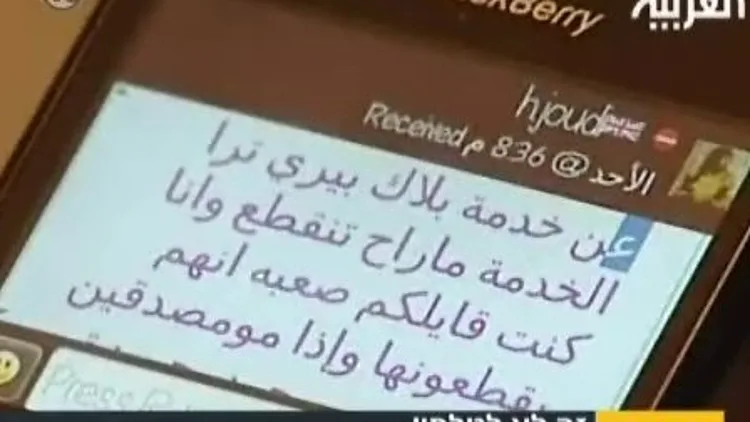 BlackBerry
العربية
hjoud
الأحد @ 8:36 م Received
عن خدمة بلاك بيري ترا
الخدمة ماراح تنقطع وانا
كنت قايلكم صعبه انهم
يقطعونها وإذا مومصدقين
Press